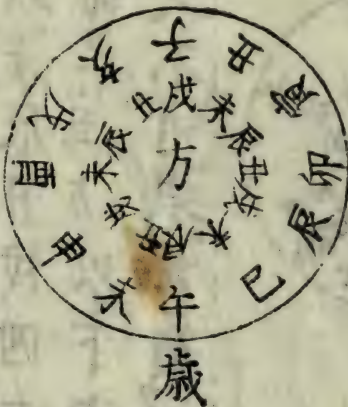 子丑寅卯辰巳午未申酉戌亥
戌未辰丑戌未辰丑戌未辰丑
方
歲